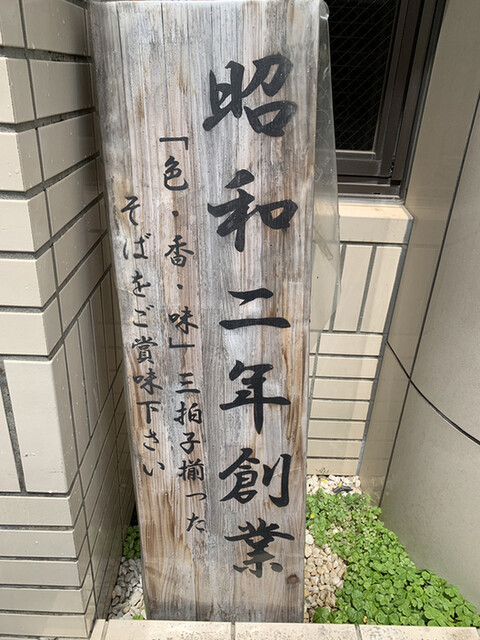 昭和二年創業
「色・香・味」三拍子揃った
そばをご賞味下さい